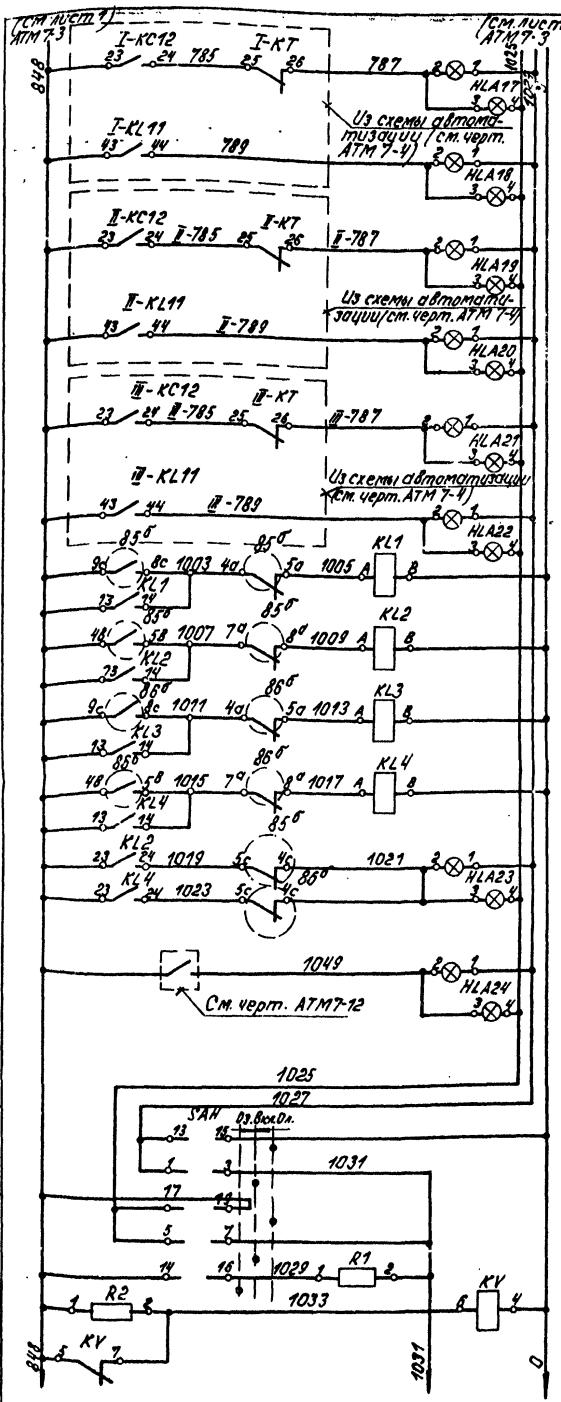 (см. лист 1)
АТМ 7-3
(см. лист
АТМ 7-3
848
1025
1027
I-KC12
I-KT
23 24 785 25 26 787 2 1
HLA17
3 4
Из схемы автома-
тизации (см. черт.
АТМ 7-4)
I-KL11
43 44 789 2 1
HLA18
3 4
II-KC12
II-KT
23 24 II-785 25 26 II-787 2 1
HLA19
3 4
Из схемы автомати-
зации (см. черт. АТМ 7-4)
II-KL11
43 44 II-789 2 1
HLA20
3 4
III-KC12
III-KT
23 24 III-785 25 26 III-787 2 1
HLA21
3 4
Из схемы автоматизации
(см. черт. АТМ 7-4)
III-KL11
43 44 III-789 2 1
HLA22
3 4
85б 85б KL1
9с 8с 1003 4а 5а 1005 А В
KL1 85б
13 14
85б KL2
4в 5в 1007 7а 8а 1009 А В
KL2
13 14
86б 86б KL3
9с 8с 1011 4а 5а 1013 А В
KL3
13 14
86б 86б KL4
4в 5в 1015 7а 8а 1017 А В
KL4 85б
13 14
KL2
23 24 1019 5с 4с 1021 2 1
86б HLA23
KL4
23 24 1023 5с 4с 3 4
1049 2 1
HLA24
3 4
См. черт. АТМ7-12
1025
1027
SAH Оз. Вкл. Оп.
13 15
1 3 1031
17 19
5 7
14 16 1029 1 R1 2
1 R2 2 1033 6 KV 4
KV
5 7
848 1031 0